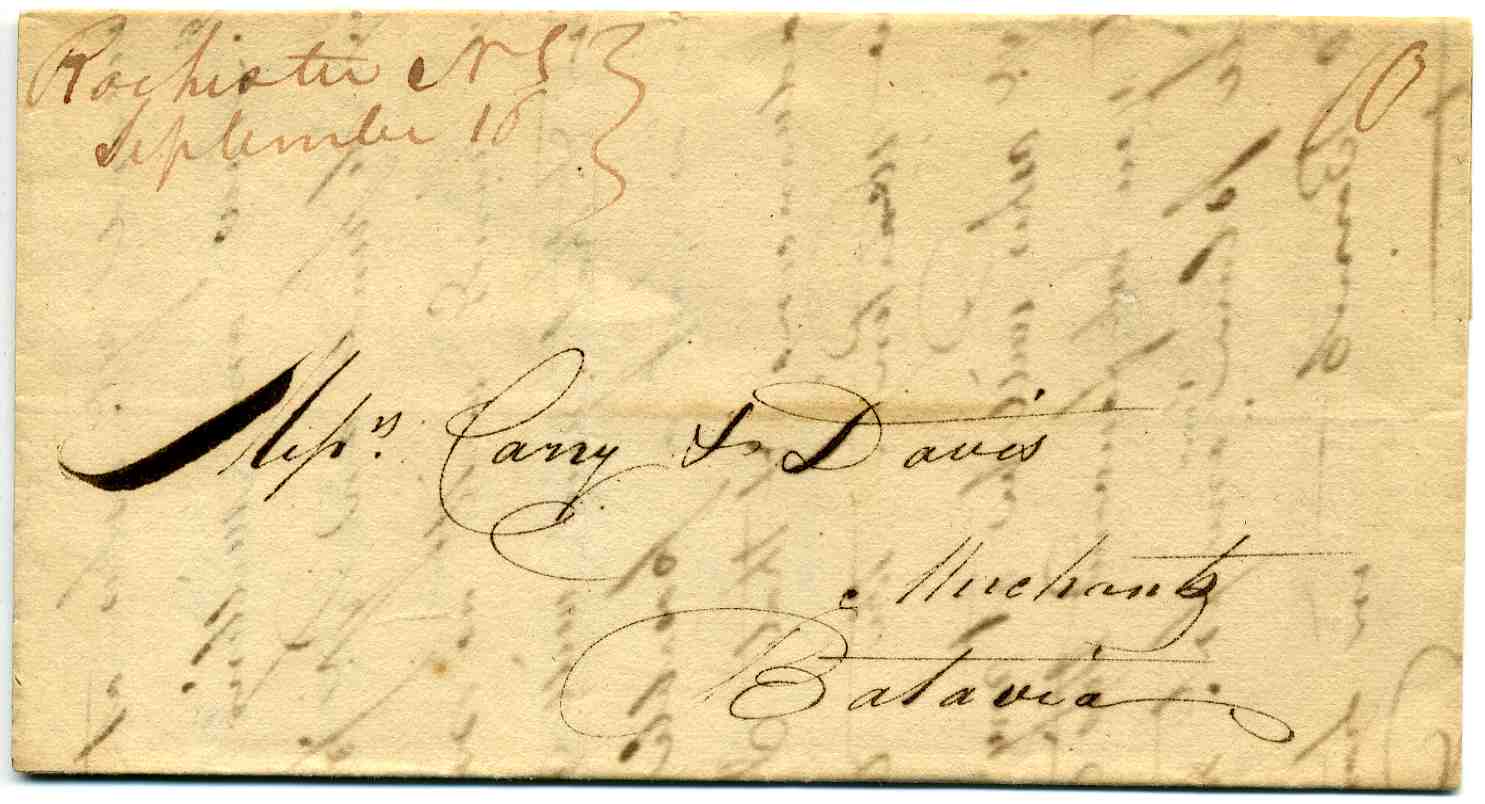 Rochester NY
September 18
10
Messrs. Carry & Davis
Merchants
Batavia